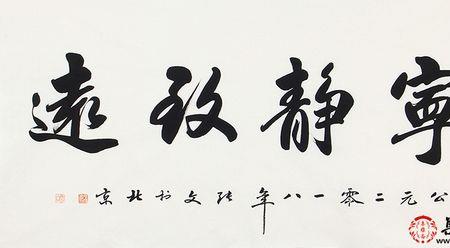 寧静致遠
公元二零一八年张文书北京